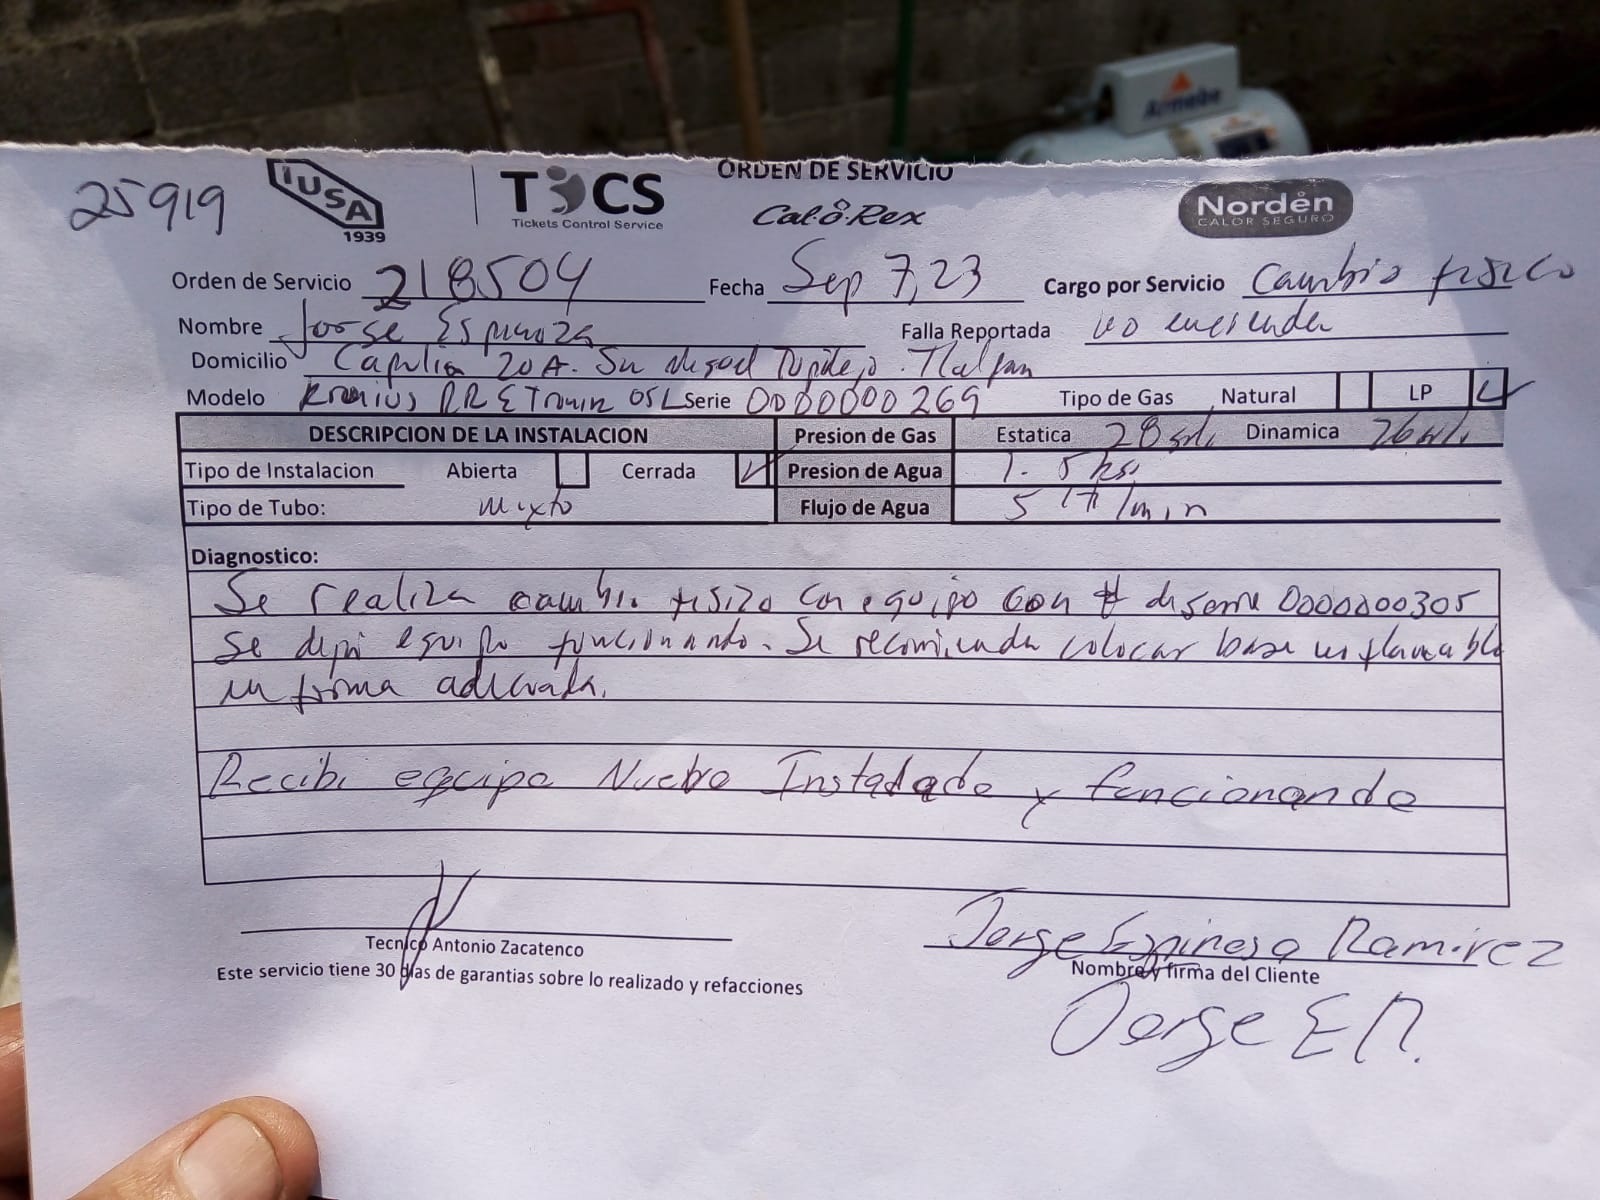 25919 IUSA 1939 TOCS Tickets Control Service ORDEN DE SERVICIO Cal-o-Rex Nordën CALOR SEGURO
Orden de Servicio 218504 Fecha Sep 7,23 Cargo por Servicio Cambio fisico
Nombre Jorge Espinoza Falla Reportada no enciende
Domicilio Capulin 20A. San Miguel Topilejo. Tlalpan
Modelo 05L Serie 0000000269 Tipo de Gas Natural LP
DESCRIPCION DE LA INSTALACION Presion de Gas Estatica 28 Dinamica 26
Tipo de Instalacion Abierta Cerrada Presion de Agua 1.5
Tipo de Tubo: mixto Flujo de Agua 5 lt/min
Diagnostico:
Se realiza cambio fisico con equipo con # de serie 0000000305
Se deja equipo funcionando. Se recomienda colocar base
en forma adecuada.
Recibi equipo Nuevo Instalado y funcionando
Tecnico Antonio Zacatenco
Este servicio tiene 30 dias de garantias sobre lo realizado y refacciones
Jorge Espinosa Ramirez
Nombre y firma del Cliente
Jorge E R.
Acmebe